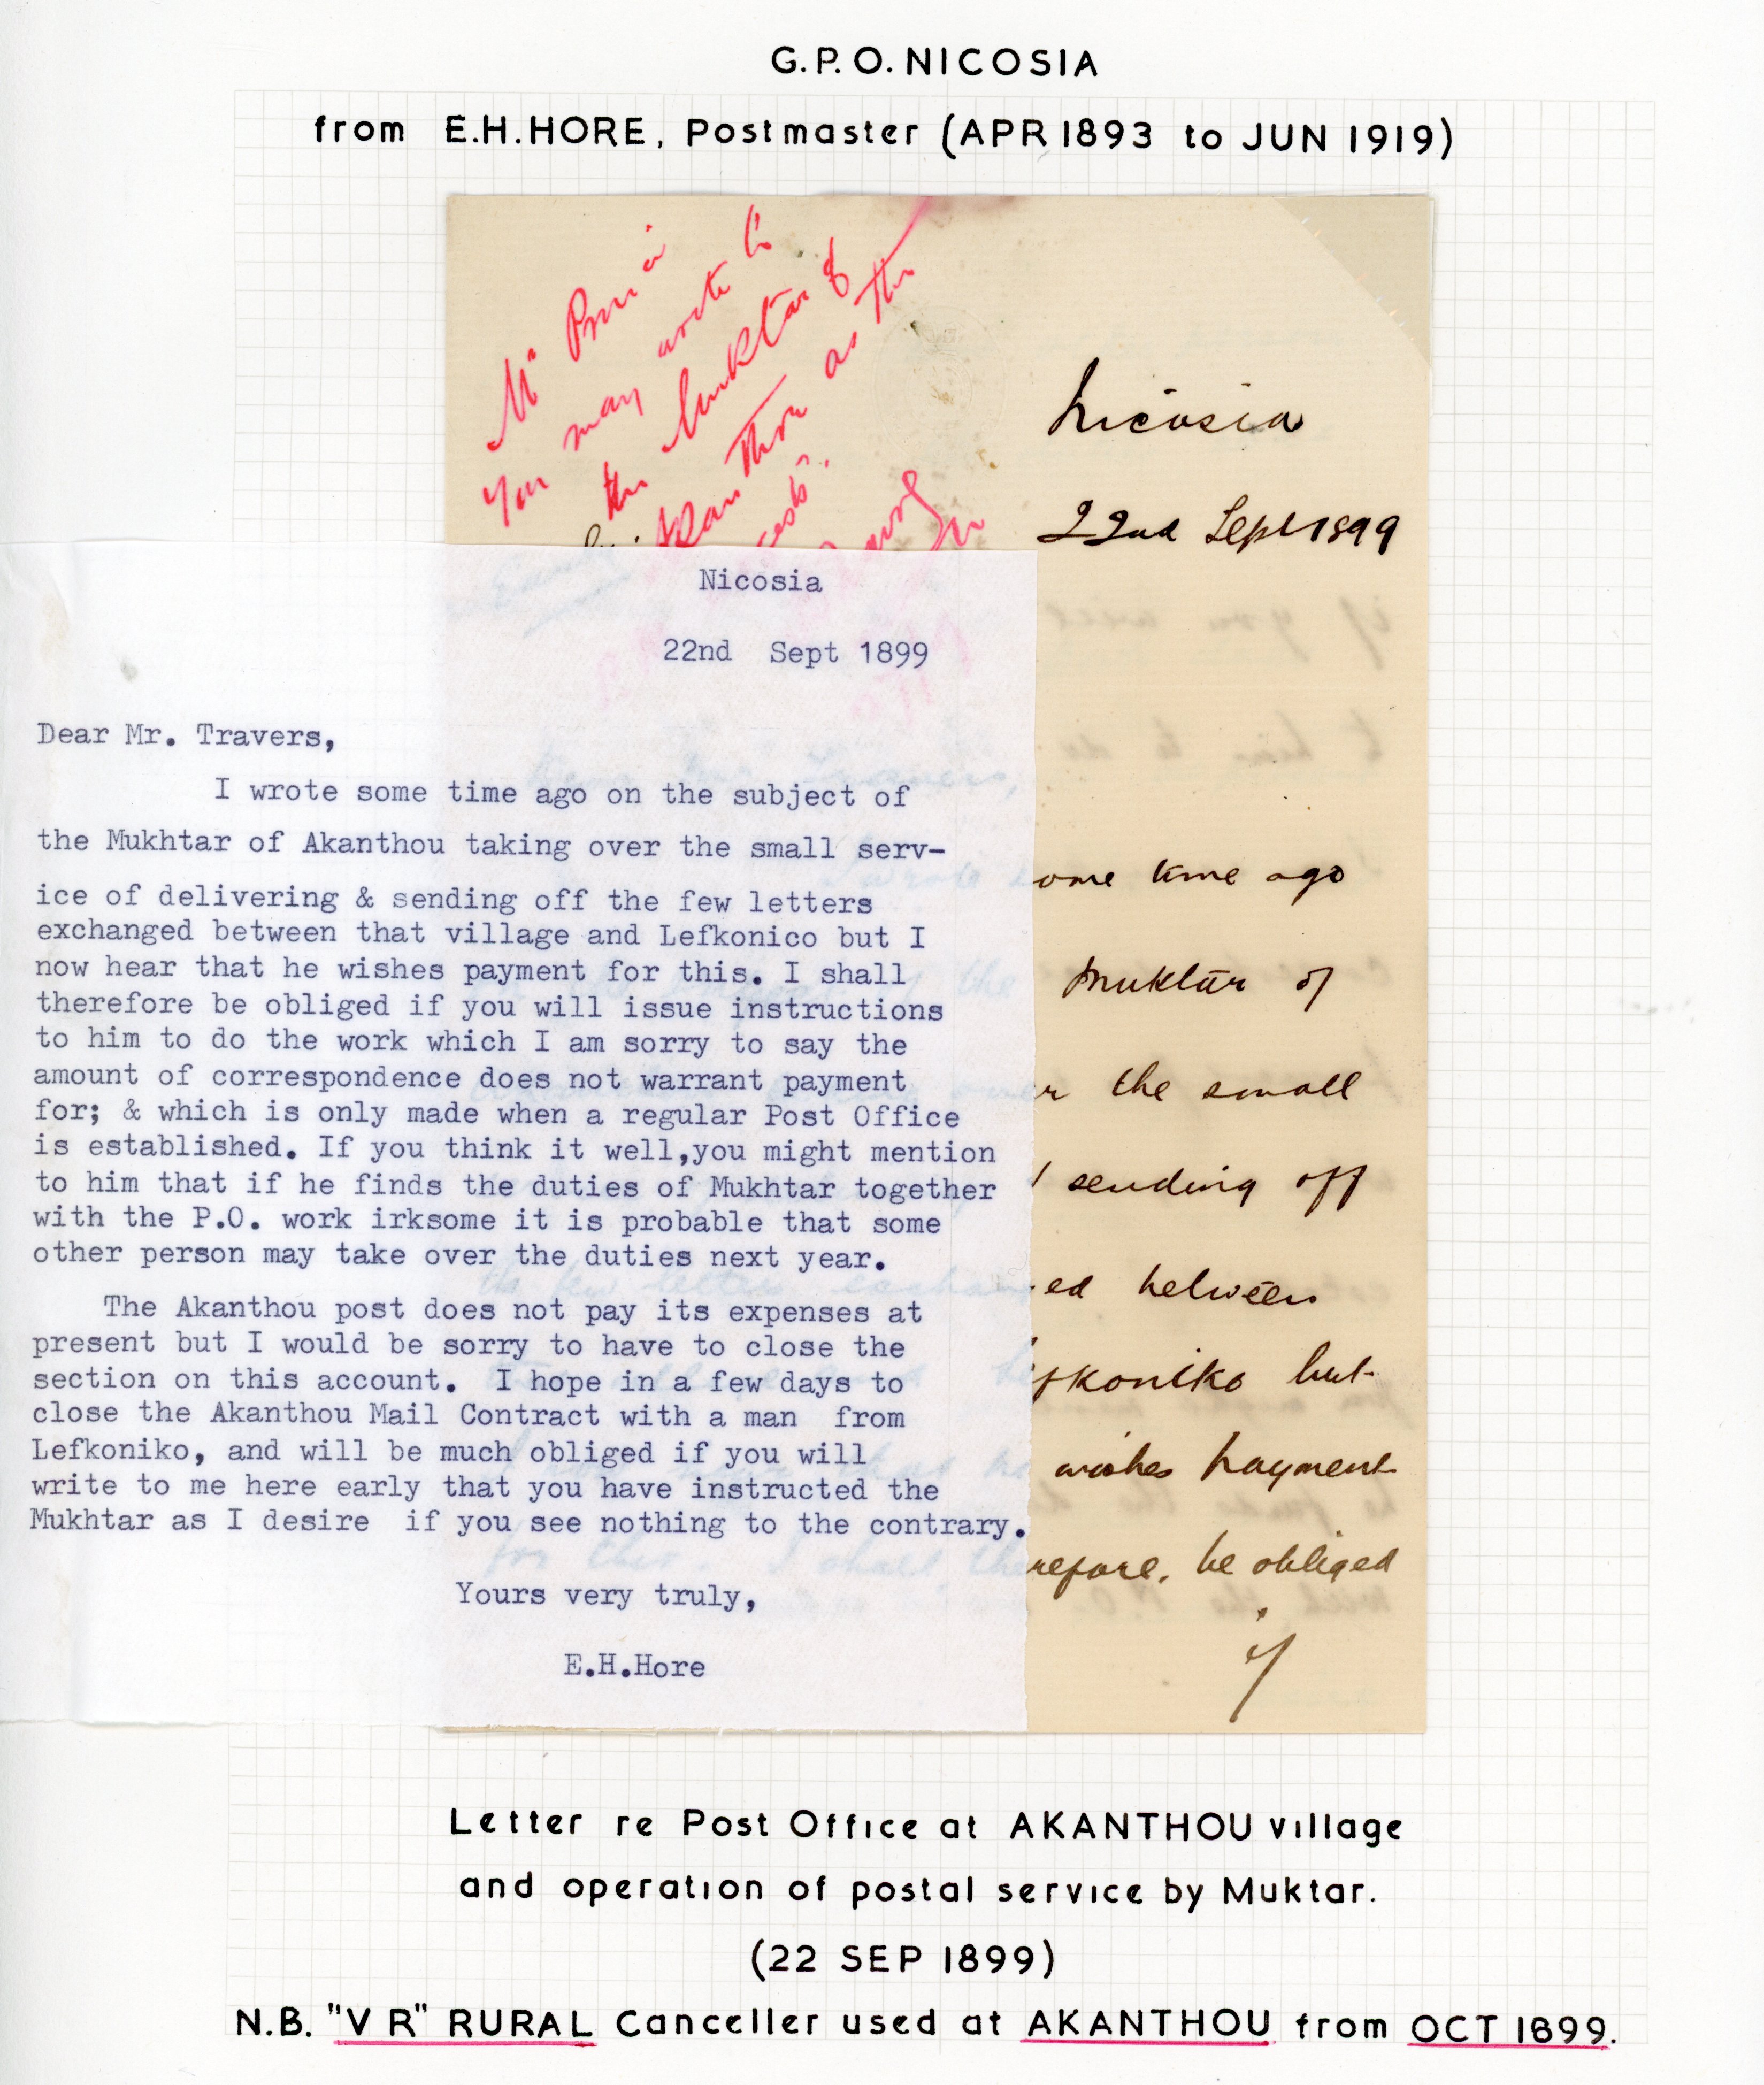 G.P.O. NICOSIA
from E.H.HORE, Postmaster (APR 1893 to JUN 1919)
you may write to
the Muktar of
Akanthou as he
Nicosia
22nd Sept 1899
Nicosia
22nd Sept 1899
Dear Mr. Travers,
I wrote some time ago on the subject of
the Mukhtar of Akanthou taking over the small serv-
ice of delivering & sending off the few letters
exchanged between that village and Lefkonico but I
now hear that he wishes payment for this. I shall
therefore be obliged if you will issue instructions
to him to do the work which I am sorry to say the
amount of correspondence does not warrant payment
for; & which is only made when a regular Post Office
is established. If you think it well,you might mention
to him that if he finds the duties of Mukhtar together
with the P.O. work irksome it is probable that some
other person may take over the duties next year.
The Akanthou post does not pay its expenses at
present but I would be sorry to have to close the
section on this account. I hope in a few days to
close the Akanthou Mail Contract with a man from
Lefkoniko, and will be much obliged if you will
write to me here early that you have instructed the
Mukhtar as I desire if you see nothing to the contrary.
Yours very truly,
E.H.Hore
ome time ago
Muktar of
r the small
sending off
ed between
fkoniko but
wishes payment
refore, be obliged
if
Letter re Post Office at AKANTHOU village
and operation of postal service by Muktar.
(22 SEP 1899)
N.B. "V R" RURAL Canceller used at AKANTHOU from OCT 1899.